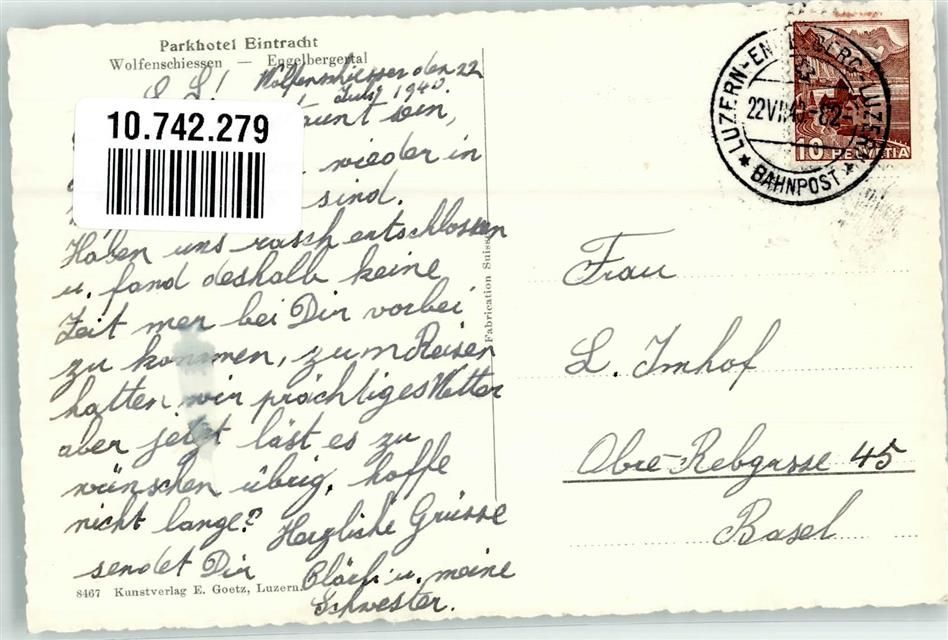 Parkhotel Eintracht
Wolfenschiessen — Engelbergertal
L. L!
Wolfenschiessen den 22
July 1940.
10.742.279
sein,
wieder in
sind.
Haben uns rasch entschlossen
u. fand deshalb keine
Zeit mer bei Dir vorbei
zu kommen, zum Reisen
hatten wir prächtiges Wetter
aber jetzt läst es zu
wünschen übrig, hoffe
nicht lange? Herzliche Grüsse
sendet Dir
u. meine
Schwester.
8467 Kunstverlag E. Goetz, Luzern.
Fabrication Suisse
LUZERN-ENGELBERG-LUZERN
22 VII 40-
BAHNPOST
10 HELVETIA
Frau
L. Imhof
Obre Rebgasse 45
Basel